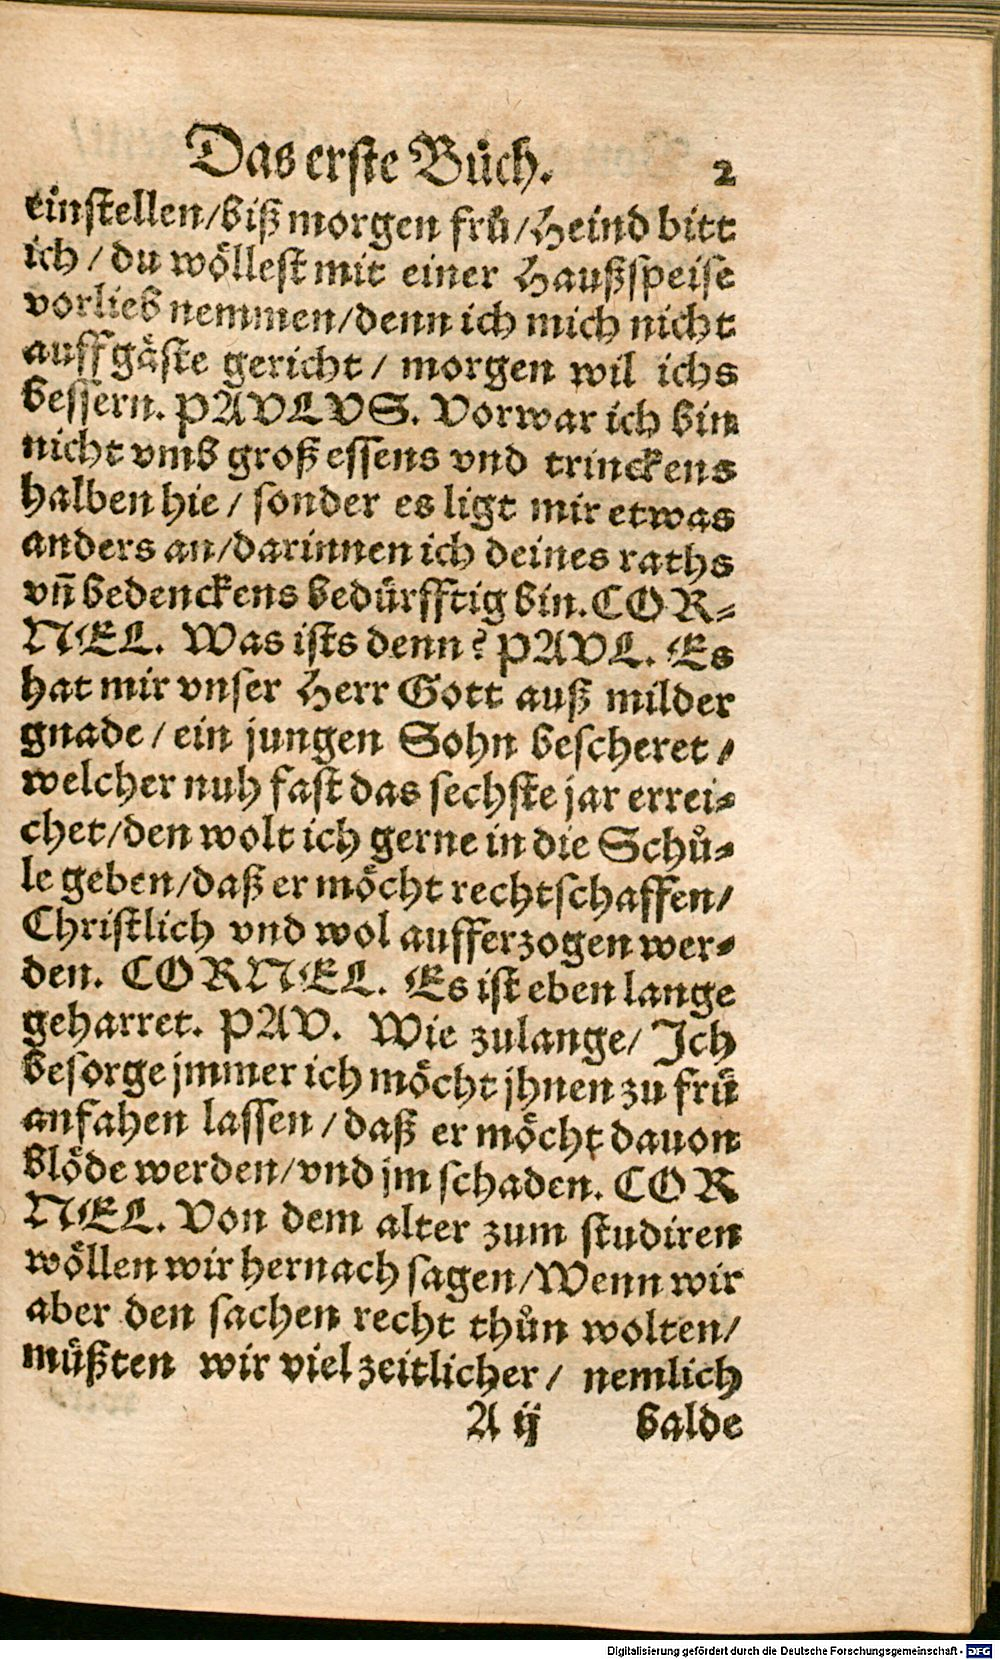 Das erste Büch. 2
einstellen/biß morgen frü/Heind bitt
ich/du wöllest mit einer Haußspeise
vorlieb nemmen/denn ich mich nicht
auff gäste gericht/ morgen wil ichs
bessern. PAVLVS. Vorwar ich bin
nicht vmb groß essens vnd trinckens
halben hie/ sonder es ligt mir etwas
anders an/darinnen ich deines raths
vñ bedenckens bedürfftig bin. COR-
NEL. Was ists denn? PAVL. Es
hat mir vnser Herr Gott auß milder
gnade/ein jungen Sohn bescheret/
welcher nuh fast das sechste jar errei-
chet/den wolt ich gerne in die Schů-
le geben/daß er möcht rechtschaffen/
Christlich vnd wol aufferzogen wer-
den. CORNEL. Es ist eben lange
geharret. PAV. Wie zulange/ Ich
besorge jmmer ich möcht jhnen zu frü
anfahen lassen/daß er möcht dauon
blöde werden/vnd jm schaden. COR
NEL. Von dem alter zum studiren
wöllen wir hernach sagen/Wenn wir
aber den sachen recht thůn wolten/
müßten wir viel zeitlicher/ nemlich
A ij balde
Digitalisierung gefördert durch die Deutsche Forschungsgemeinschaft - DFG